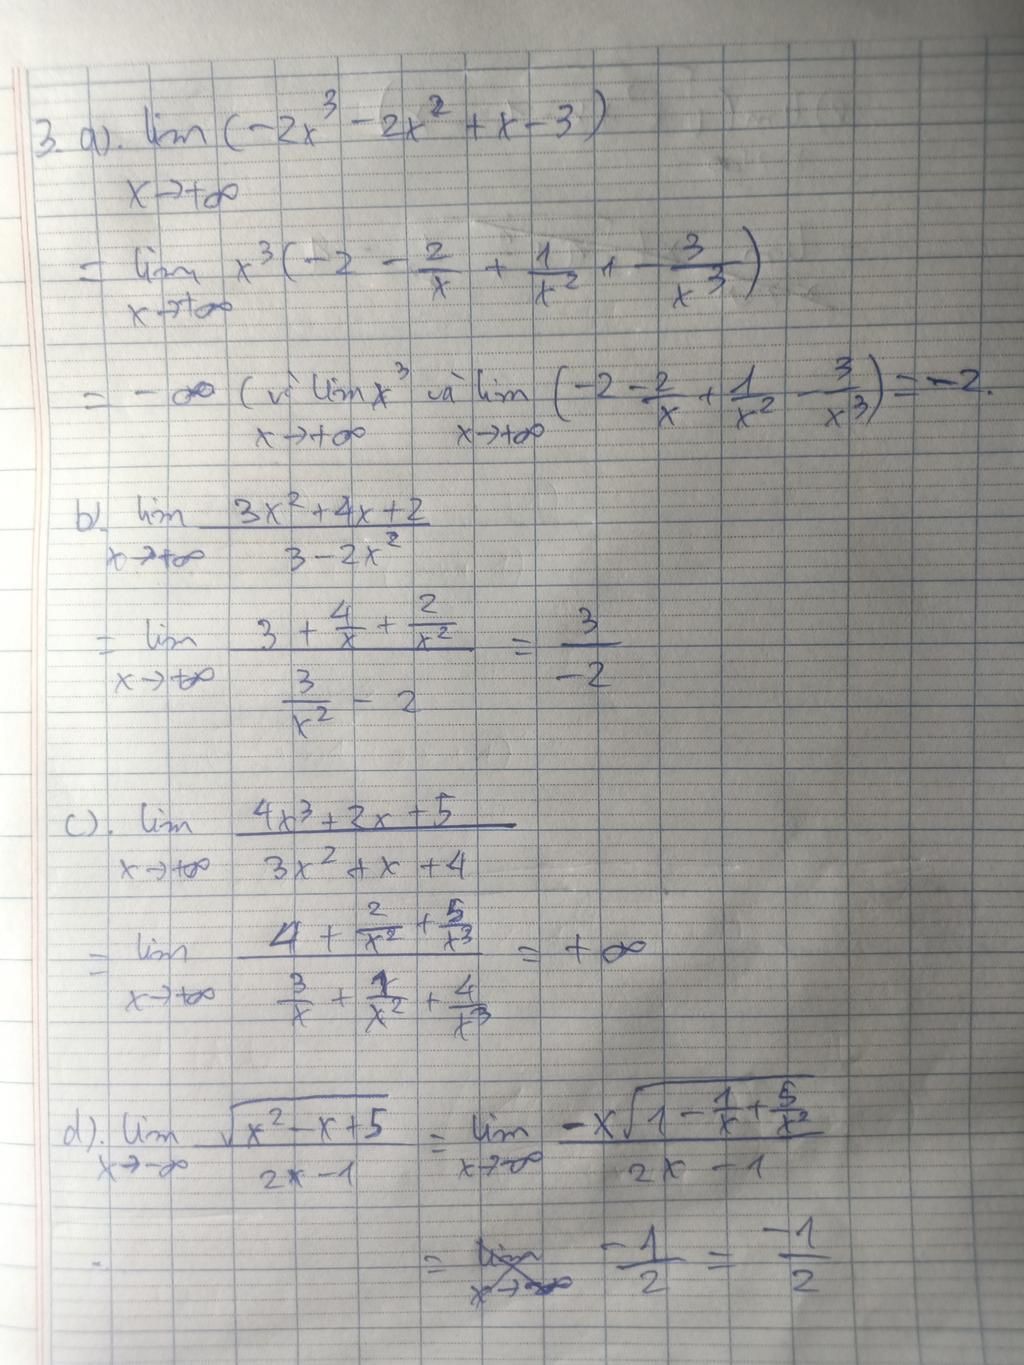 3. a). lim (-2x³ - 2x² + x - 3)
x→+∞
= lim x³(-2 - 2/x + 1/x² + - 3/x³)
x→+∞
= -∞ (vì lim x³ và lim (-2 - 2/x + 1/x² - 3/x³) = -2.
x→+∞ x→+∞
b). lim (3x² + 4x + 2)/(3 - 2x²)
x→+∞
= lim (3 + 4/x + 2/x²)/(3/x² - 2) = 3/-2
x→+∞
c). lim (4x³ + 2x + 5)/(3x² + x + 4)
x→+∞
= lim (4 + 2/x² + 5/x³)/(3/x + 1/x² + 4/x³) = +∞
x→+∞
d). lim √(x² - x + 5)/(2x - 1) = lim -x√(1 - 1/x + 5/x²)/(2x - 1)
x→-∞ x→-∞
= -1/2 = -1/2